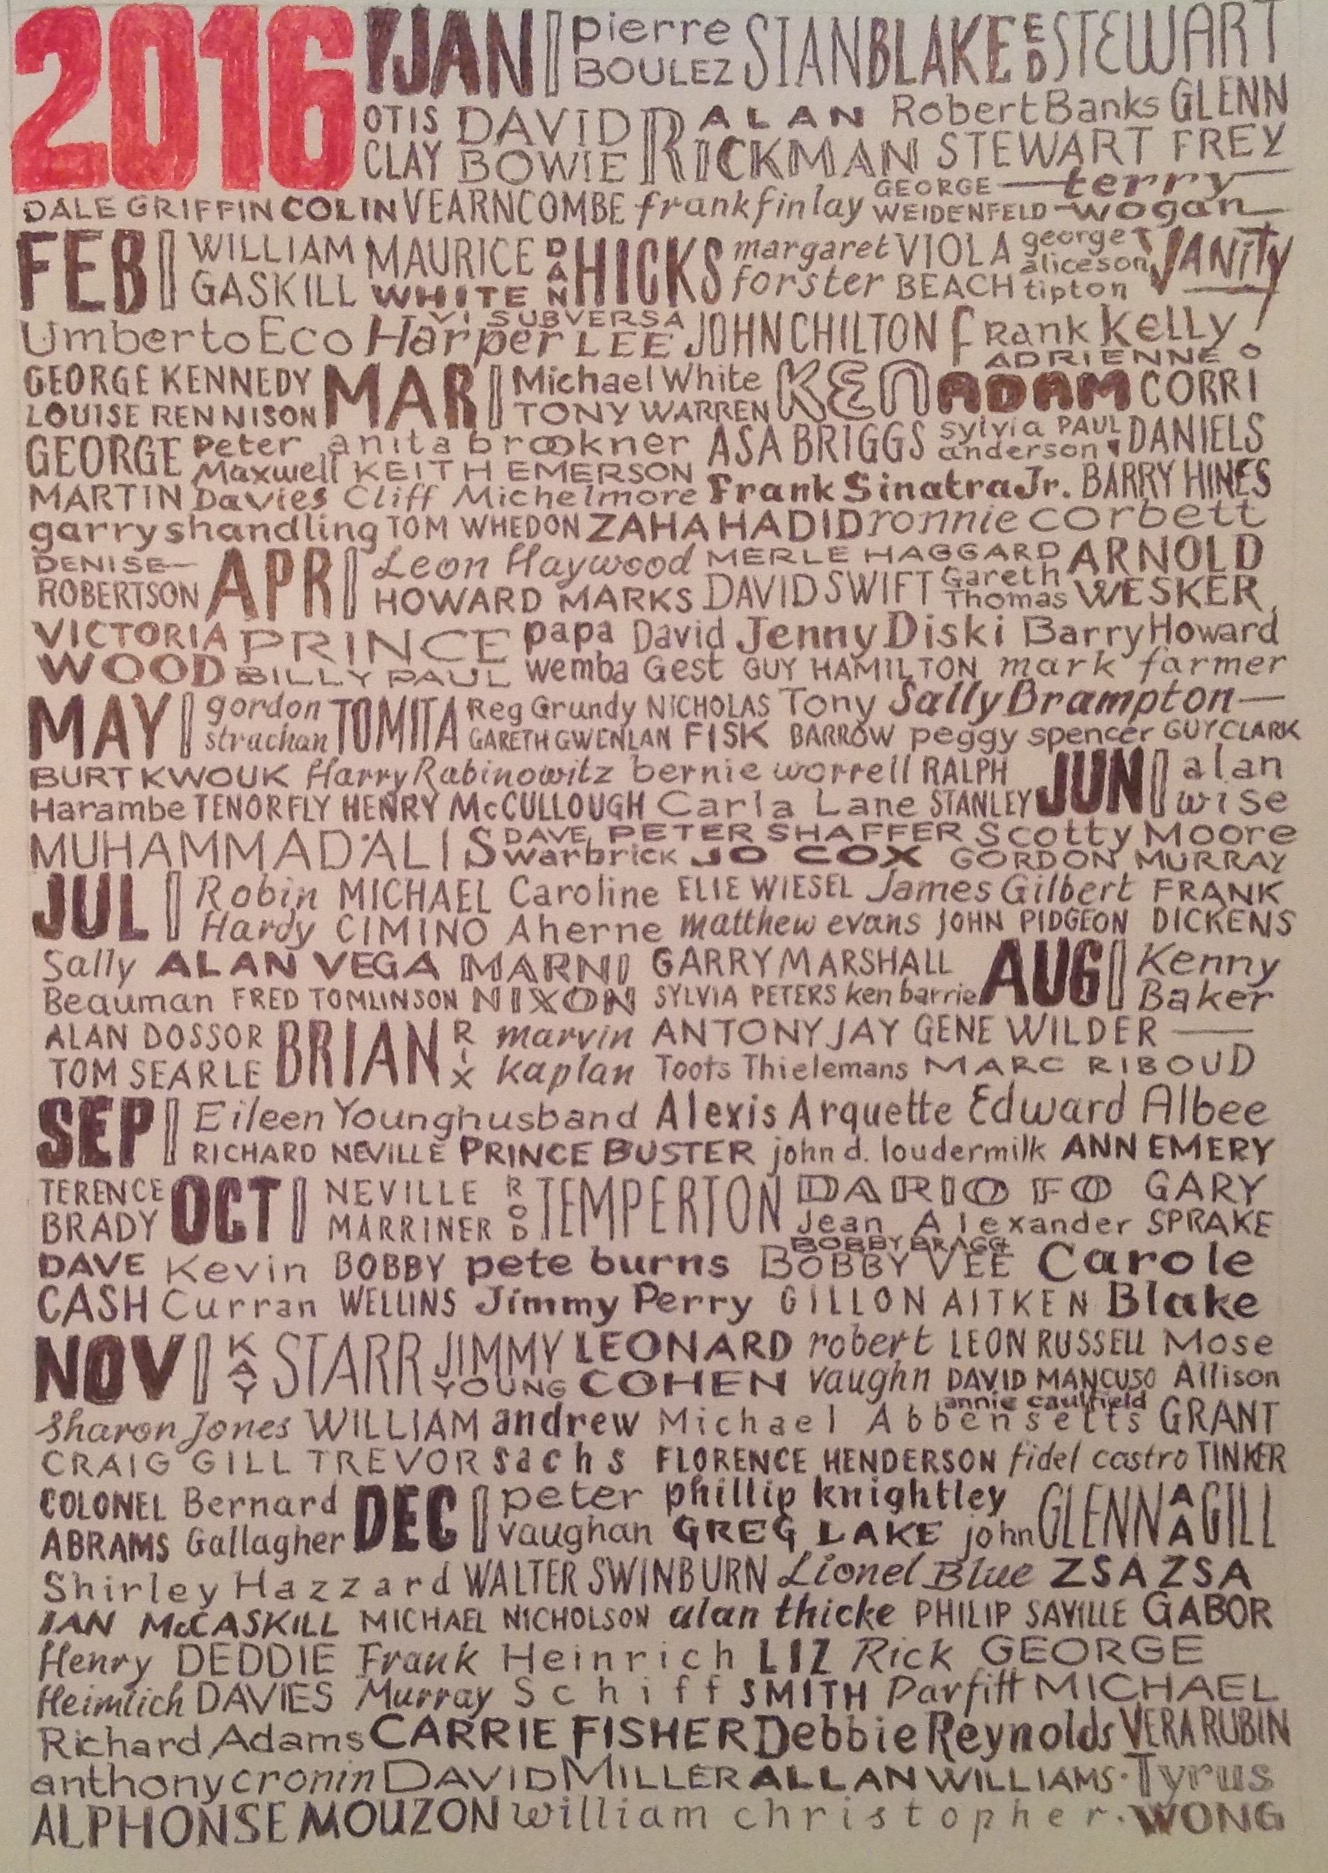 2016 JAN pierre BOULEZ STAN BLAKE ED STEWART
OTIS CLAY DAVID BOWIE ALAN RICKMAN Robert Banks STEWART GLENN FREY
DALE GRIFFIN COLIN VEARNCOMBE frank finlay GEORGE WEIDENFELD terry wogan
FEB WILLIAM GASKILL MAURICE WHITE DAN HICKS margaret forster VIOLA BEACH george aliceson tipton VANITY
Umberto Eco Harper LEE VI SUBVERSA JOHN CHILTON Frank Kelly
GEORGE KENNEDY LOUISE RENNISON MAR Michael White TONY WARREN KEN ADAM ADRIENNE CORRI
GEORGE MARTIN Peter Maxwell Davies anita brookner KEITH EMERSON ASA BRIGGS sylvia anderson PAUL DANIELS
Cliff Michelmore Frank Sinatra Jr. BARRY HINES
garry shandling TOM WHEDON ZAHA HADID ronnie corbett
DENISE ROBERTSON APR Leon Haywood HOWARD MARKS MERLE HAGGARD DAVID SWIFT Gareth Thomas ARNOLD WESKER
VICTORIA WOOD PRINCE BILLY PAUL papa wemba David Gest Jenny Diski GUY HAMILTON Barry Howard mark farmer
MAY gordon strachan TOMITA Reg Grundy GARETH GWENLAN NICHOLAS FISK Tony BARROW Sally Brampton peggy spencer GUY CLARK
BURT KWOUK Harry Rabinowitz bernie worrell RALPH STANLEY JUN alan wise
Harambe TENORFLY HENRY McCULLOUGH Carla Lane
MUHAMMAD ALI DAVE Swarbrick PETER SHAFFER JO COX Scotty Moore GORDON MURRAY
JUL Robin Hardy MICHAEL CIMINO Caroline Aherne ELIE WIESEL matthew evans James Gilbert JOHN PIDGEON FRANK DICKENS
Sally Beauman ALAN VEGA FRED TOMLINSON MARNI NIXON GARRY MARSHALL SYLVIA PETERS ken barrie AUG Kenny Baker
ALAN DOSSOR TOM SEARLE BRIAN RIX marvin kaplan ANTONY JAY Toots Thielemans GENE WILDER MARC RIBOUD
SEP Eileen Younghusband Alexis Arquette Edward Albee
RICHARD NEVILLE PRINCE BUSTER john d. loudermilk ANN EMERY
TERENCE BRADY OCT NEVILLE MARRINER ROD TEMPERTON DARIO FO Jean Alexander GARY SPRAKE
DAVE CASH Kevin Curran BOBBY WELLINS pete burns Jimmy Perry BOBBY BRAGG BOBBY VEE GILLON AITKEN Carole Blake
NOV KAY STARR JIMMY YOUNG LEONARD COHEN robert vaughn LEON RUSSELL DAVID MANCUSO Mose Allison
Sharon Jones WILLIAM TREVOR andrew sachs Michael Abbensetts annie caulfield GRANT TINKER
CRAIG GILL FLORENCE HENDERSON fidel castro
COLONEL ABRAMS Bernard Gallagher DEC peter vaughan phillip knightley GREG LAKE john GLENN A A GILL
Shirley Hazzard WALTER SWINBURN Lionel Blue ZSA ZSA GABOR
IAN McCASKILL MICHAEL NICHOLSON alan thicke PHILIP SAVILLE
Henry Heimlich DEDDIE DAVIES Frank Murray Heinrich Schiff LIZ SMITH Rick Parfitt GEORGE MICHAEL
Richard Adams CARRIE FISHER Debbie Reynolds VERA RUBIN
anthony cronin DAVID MILLER ALLAN WILLIAMS · Tyrus WONG
ALPHONSE MOUZON william christopher ·